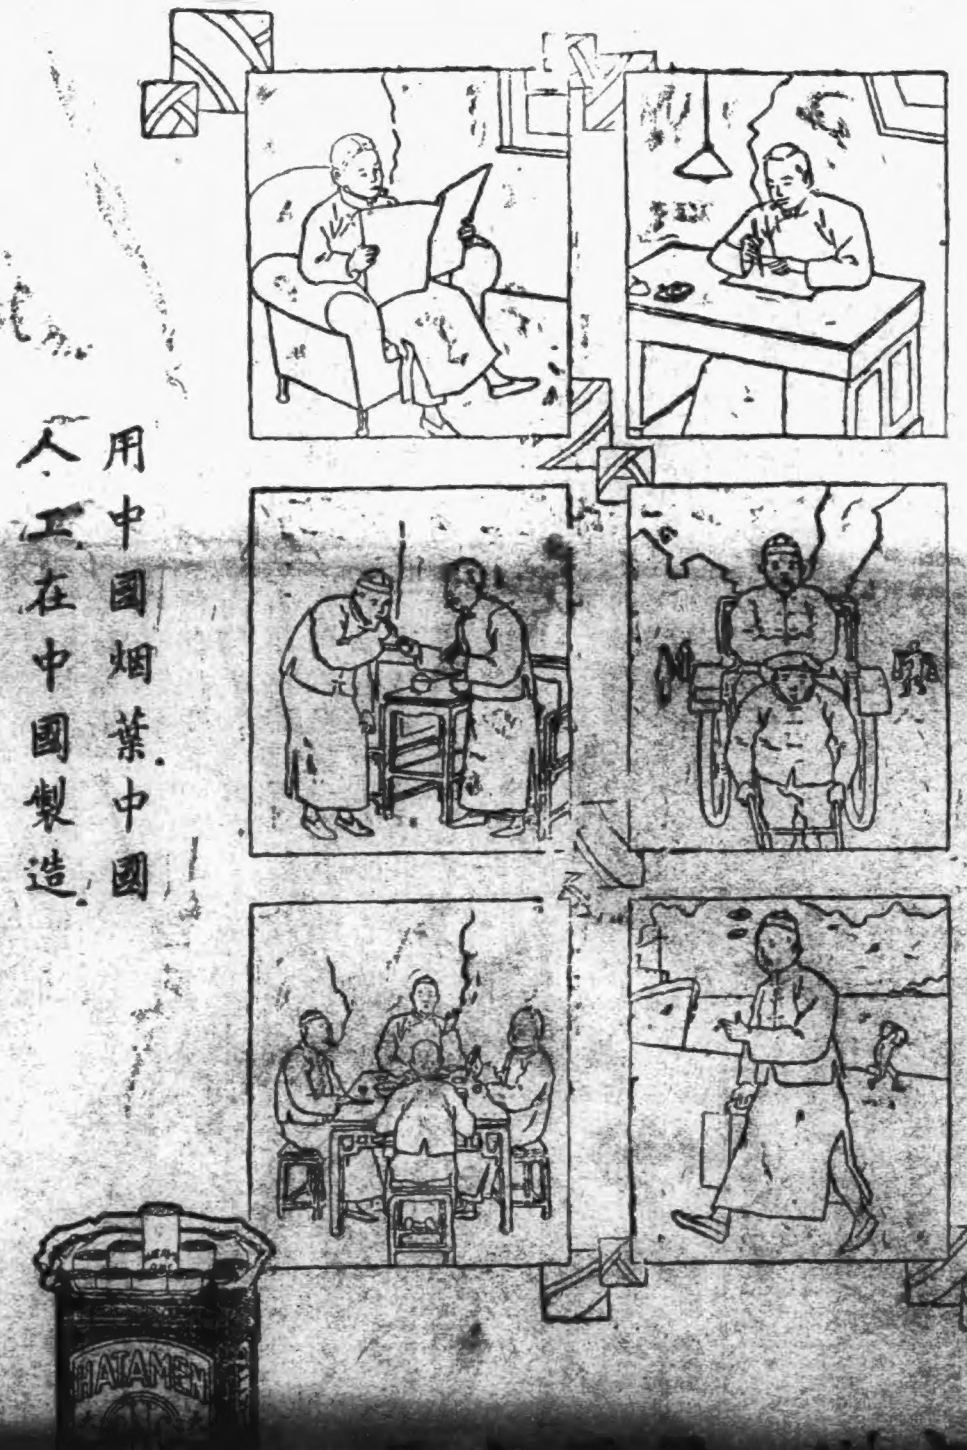 用中國烟葉中國
人工在中國製造
HATAMEN